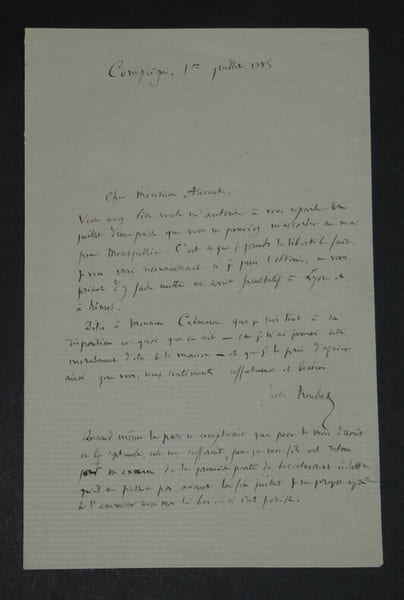 Compiègne, 1er juillet 1885
Cher Monsieur
Vous avez bien voulu m'autoriser à vous reparler en
juillet d'une passe que vous ne pouviez m'accorder en mai
pour Montpellier. C'est ce que je prends la liberté de faire.
Je vous serai reconnaissant si je puis l'obtenir, en vous
priant d'y faire mettre un arrêt facultatif à Lyon et
à Nîmes.
Dites à Monsieur que je suis tout à sa
disposition en quoi que ce soit — car je n'ai jamais cessé
moralement d'être de la maison — et que je le prie d'agréer
ainsi que vous, mes sentiments affectueux et
Jules Troubat
Quand même la passe ne compterait que pour le mois d'août
ou de septembre, cela me suffirait, puisque mon fils est retenu
par son examen de la première partie du baccalauréat
qu'il ne passera pas avant la fin juillet. Je me propose après
de l'emmener avec moi là-bas... si c'est possible.